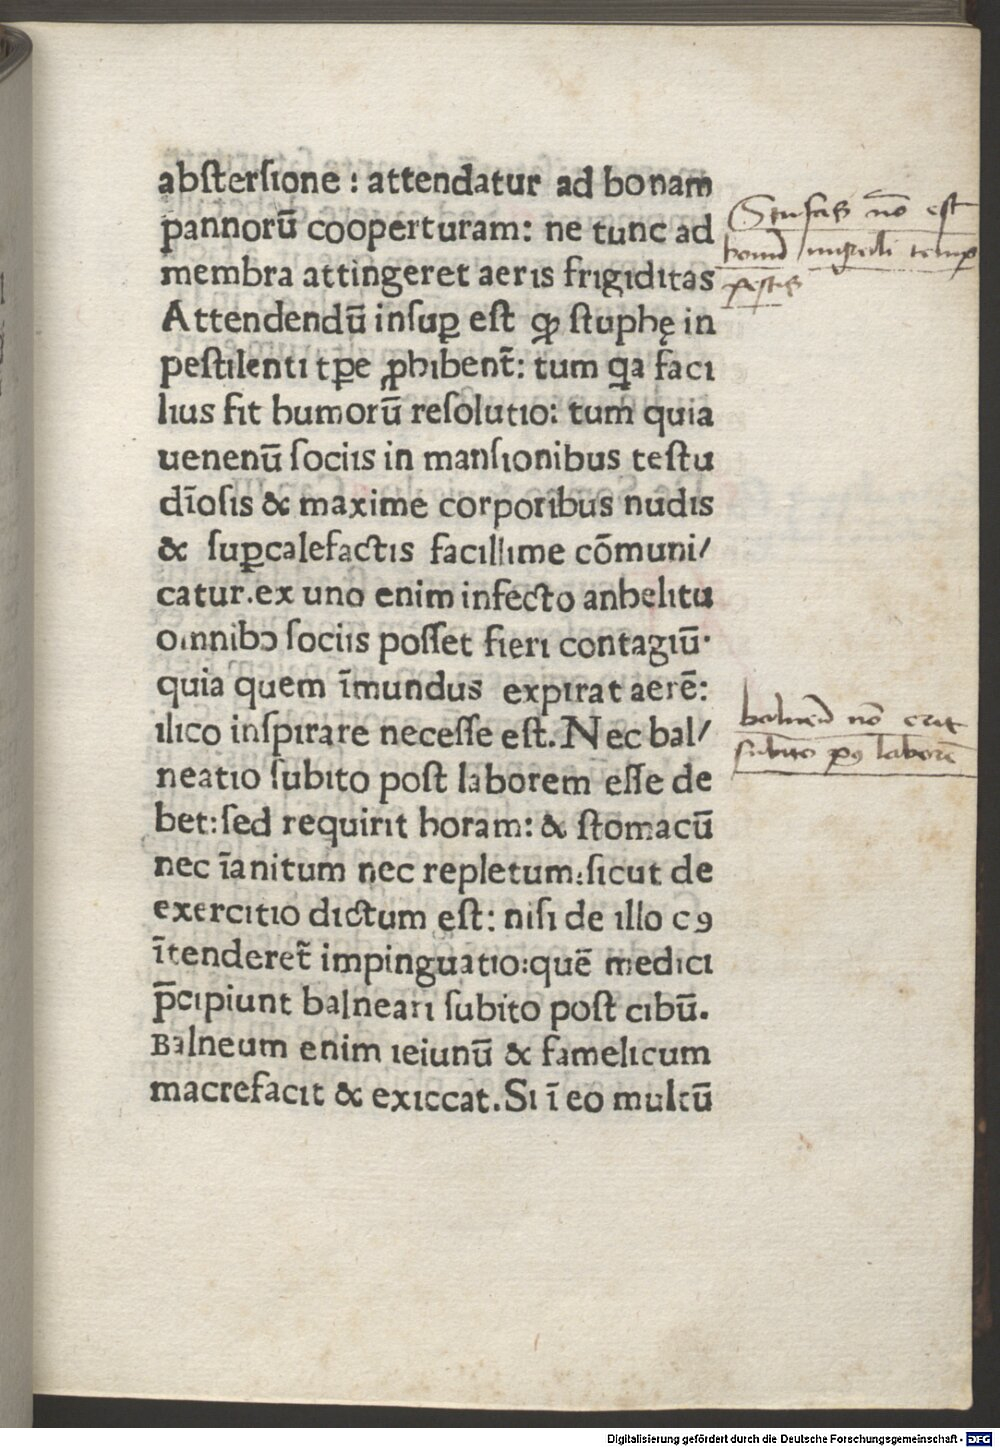 abſterſione : attendatur ad bonam
pannorū cooperturam: ne tunc ad
membra attingeret aeris frigiditas
Attendendū inſuꝑ eſt ꝙ ſtuphę in
peſtilenti tꝑe ꝓhibent̄: tum qa faci
lius fit humorū reſolutio: tum quia
uenenū ſociis in manſionibus teſtu
dīoſis & maxime corporibus nudis
& ſuꝑcalefactis facillime cōmuni/
catur.ex uno enim infecto anhelitu
omnibꝫ ſociis poſſet fieri contagiū.
quia quem īmundus expirat aerē:
ilico inſpirare neceſſe eſt. Nec bal/
neatio ſubito poſt laborem eſſe de
bet:ſed requirit horam: & ſtomacū
nec īanitum nec repletum:ſicut de
exercitio dictum eſt: niſi de illo cꝯ
ītenderet̄ impinguatio:quē medici
p̄cipiunt balneari ſubito poſt cibū.
Balneum enim ieiunū & famelicum
macrefacit & exiccat. Si ī eo multū
Stufas nō eſt
bonū ingredi temp
peſtis
balneū nō erit
ſubito pꝯ laborē
Digitalisierung gefördert durch die Deutsche Forschungsgemeinschaft - DFG